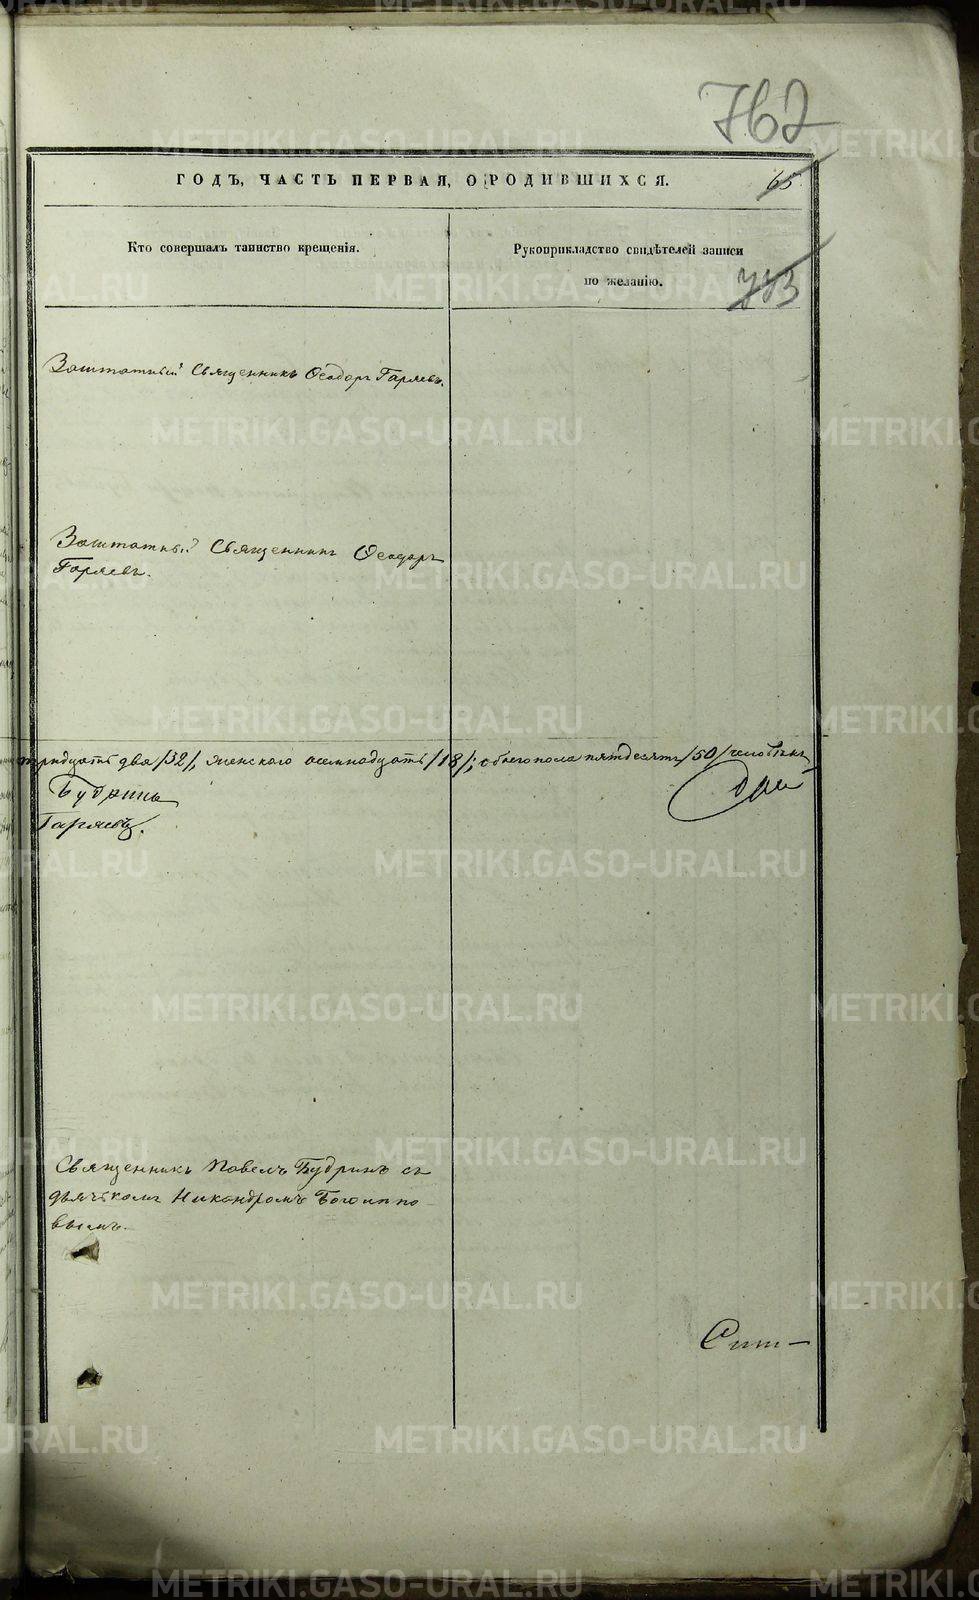 762
ГОДЪ, ЧАСТЬ ПЕРВАЯ, О РОДИВШИХСЯ.
65
Кто совершалъ таинство крещенія.
Рукоприкладство свидѣтелей записи
по желанію.
773
Заштатный Священникъ Ѳеодоръ Гаряевъ.
Заштатный Священникъ Ѳеодоръ
Гаряевъ.
тридцать два /32/, женскаго осемнадцать /18/; обоего пола пятьдесятъ /50/ человѣкъ
Будринъ
Гаряевъ.
Священникъ Павелъ Будринъ съ
дьячькомъ Никандромъ Богоиппо
вымъ.
METRIKI.GASO-URAL.RU